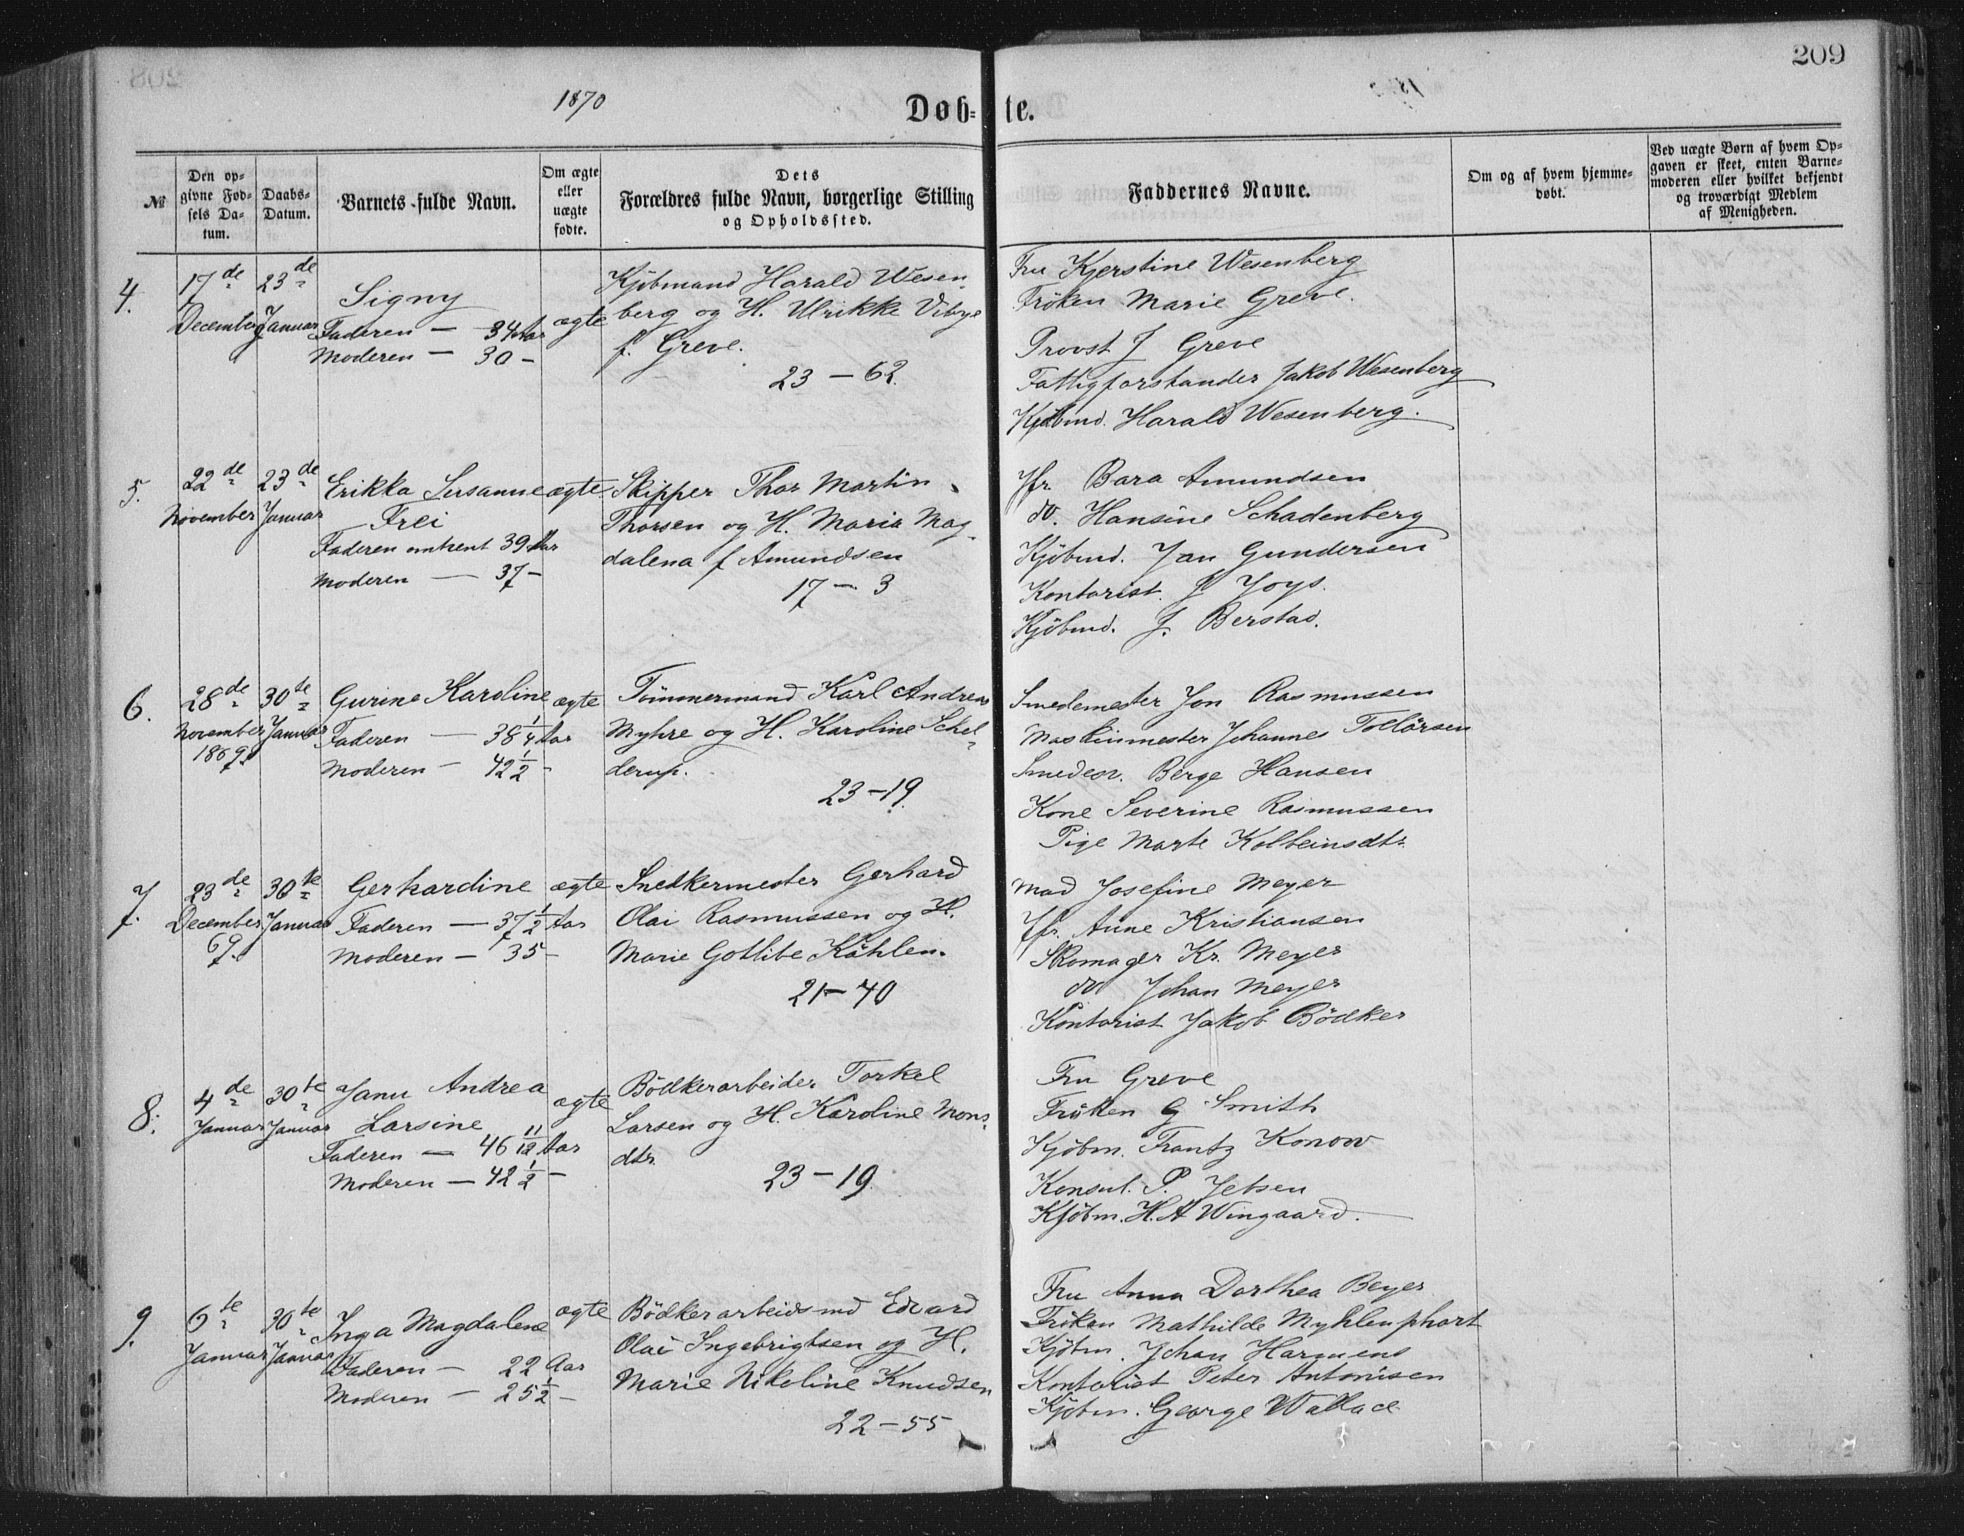 209
1870
Døb-te.
№
Den op-
givne Fød-
sels Da-
tum.
Daabs-
Datum.
Barnets fulde Navn.
Om ægte
eller
uægte
fødte.
Dets
Forældres fulde Navn, borgerlige Stilling
og Opholdssted.
Faddernes Navne.
Om og af hvem hjemme-
døbt.
Ved uægte Børn af hvem Op-
gaven er skeet, enten Barne-
moderen eller hvilket bekjendt
og troværdigt Medlem
af Menigheden.
4.
17de
December
23de
Januar
Signy
Faderen — 34 Aar
Moderen — 30 –
ægte
Kjøbmand Harald Wesen-
berg og H. Ulrikke Vibye
f. Greve.
23 – 62.
Fru Kjerstine Wesenberg
Frøken Marie Greve.
Provst J Greve
Fattigforstander Jakob Wesenberg
Kjøbmd. Harald Wesenberg.
5.
22de
November
23de
Januar
Erikka Susanne
Frei
Faderen omtrent 39 Aar
Moderen — 37 –
ægte
Skipper Thor Martin
Thorsen og H. Maria Mag-
dalena f Amundsen
17 – 3
Jfr. Bara Amundsen
do. Hansine Schadenberg
Kjøbmd. Jan Gundersen
Kontorist. J Joys.
Kjøbmd. J. Berstad.
6.
28de
November
1869.
30te
Januar
Gurine Karoline
Faderen — 38 1/4 Aar
Moderen — 42 1/2 –
ægte
Tømmermand Karl Andreas
Myhre og H. Karoline Schel-
derup.
23 – 19.
Smedemester Jon Rasmussen
Maskinmester Johannes Tollørsen
Smedesv. Berge Hansen
Kone Severine Rasmussen
Pige Marte Kolbeinsdtr.
7.
23de
December
69.
30te
Januar
Gerhardine
Faderen — 37 1/2 Aar
Moderen — 35 –
ægte
Snedkermester Gerhard
Olai Rasmussen og H.
Marie Gotlibe Køhlen.
21 – 40
Mad Josefine Meyer
Jfr. Anne Kristiansen
Skomager Kr. Meyer
do Johan Meyer
Kontorist Jakob Bødker
8.
4de
Januar
30te
Januar
Janu Andrea
Larsine
Faderen — 46 11/12 Aar
Moderen — 42 1/2 –
ægte
Bødkerarbeider Torkel
Larsen og H. Karoline Mons-
dtr.
23 – 19.
Fru Greve
Frøken G Smith
Kjøbm. Frantz Konow
Konsul. P. Jebsen
Kjøbm. H. A Wingaard.
9.
6te
Januar
30te
Januar
Inga Magdalene
Faderen — 22 Aar
Moderen — 25 1/2 –
ægte
Bødkerarbeidsmd Edvard
Olai Ingebrigtsen og H.
Marie Nikoline Knudsen
22 – 55
Fru Anna Dorthea Beyer
Frøken Mathilde Myhlenphort
Kjøbm. Johan Harmens
Kontorist Peter Antonisen
Kjøbm. George Wallace